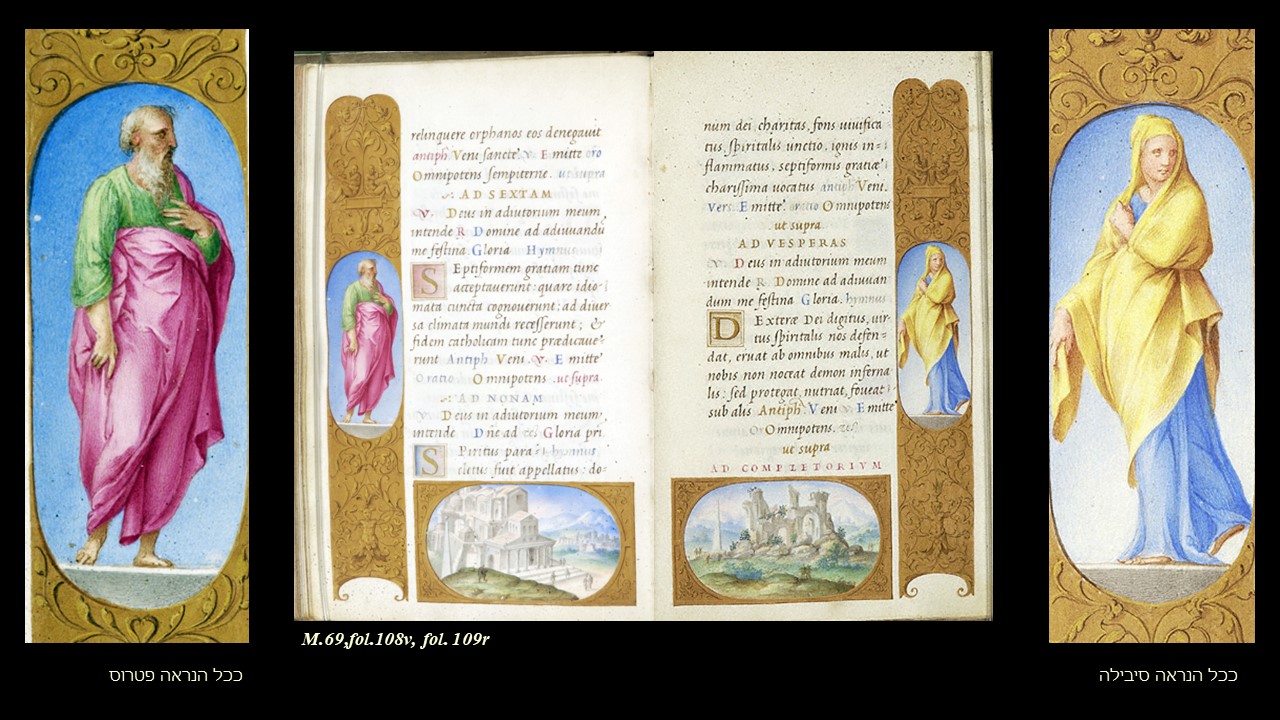 relinquere orphanos eos denegauit
antiph Veni sancte. V. Emitte oro
Omnipotens sempiterne. ut supra
AD SEXTAM
V. Deus in adiutorium meum
intende R Domine ad adiuuandū
me festina Gloria Hymnus
Septiformem gratiam tunc
acceptauerunt: quare idio-
mata cuncta cognouerunt: ad diuer
sa climata mundi recesserunt; &
fidem catholicam tunc prædicaue-
runt Antiph Veni. V. Emitte
Oratio Omnipotens .ut supra.
AD NONAM
V Deus in adiutorium meum,
intende Dñe ad Gloria pri
Spiritus para-
cletus fuit appellatus: do-
num dei charitas, fons uiuifica
tus, spiritalis unctio, ignis in-
flammatus, septiformis gratiæ
charissima uocatus antiph Veni.
vers Emitte. oratio Omnipotens
ut supra
AD VESPERAS
Deus in adiutorium meum
intende R Domine ad adiuuan
dum me festina Gloria. hymnus
DExteræ Dei digitus, uir-
tus spiritalis nos defen-
dat, eruat ab omnibus malis, ut
nobis non noceat demon inferna
lis: sed protegat, nutriat, foueat
sub alis Antiph. Veni Emitte
Omnipotens.
ut supra
AD COMPLETORIVM
M.69,fol.108v, fol. 109r
ככל הנראה פטרוס
ככל הנראה סיבילה